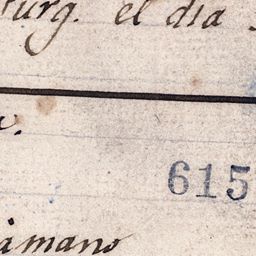 turg. el dia
v.
615
amano